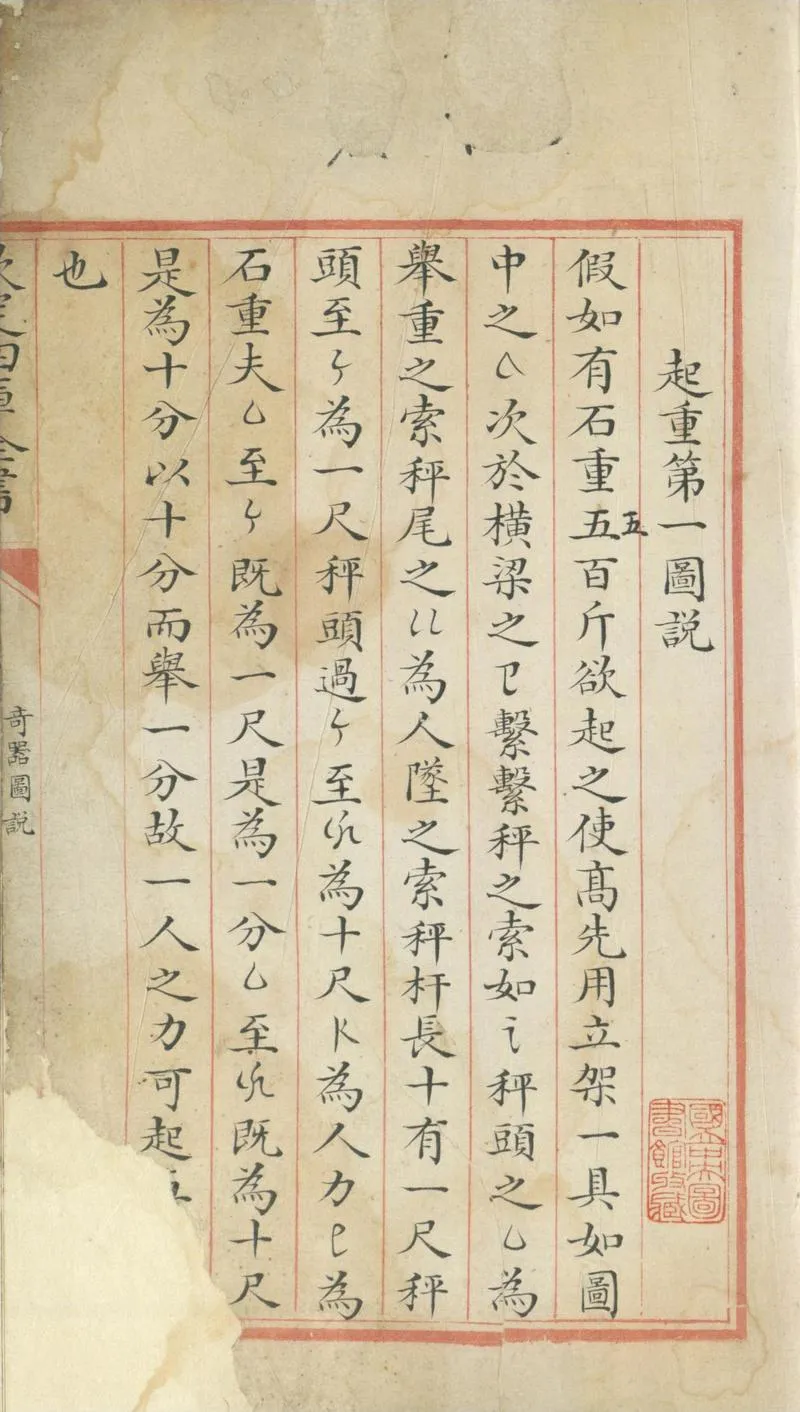 起重第一圖說
假如有石重五百斤欲起之使髙先用立架一具如圖
五
中之ㄙ次於橫梁之㔾繫繫秤之索如讠秤頭之乚為
舉重之索秤尾之〢為人墜之索秤杆長十有一尺秤
頭至ㄅ為一尺秤頭過ㄅ至為十尺为人力為
石重夫乚至ㄅ既為一尺是為一分乚至既為十尺
是為十分以十分而舉一分故一人之力可起
也
欽定四庫全書
奇器圖說
國立中央圖書館收藏